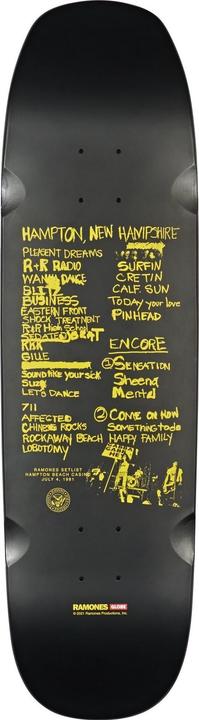 HAMPTON, NEW HAMPSHIRE
PLEASENT DREAMS
R+R RADIO
WANNA DANCE
BITZ
BUSINESS
EASTERN FRONT
SHOCK TREATMENT
R+R High School
SEDATED BEAT
RRR
GILLE
Sound like your sick
Suzy
LET'S DANCE
711
AFFECTED
CHINESE ROCKS
ROCKAWAY BEACH
LOBOTOMY
SURFIN
CRETIN
CALF SUN
TODAY your love
PINHEAD
ENCORE
① SENSATION
Sheena
Mental
② COME ON NOW
Something to do
HAPPY FAMILY
RAMONES SETLIST
HAMPTON BEACH CASINO
JULY 4, 1981
RAMONES GLOBE
© 2021 Ramones Productions, Inc.